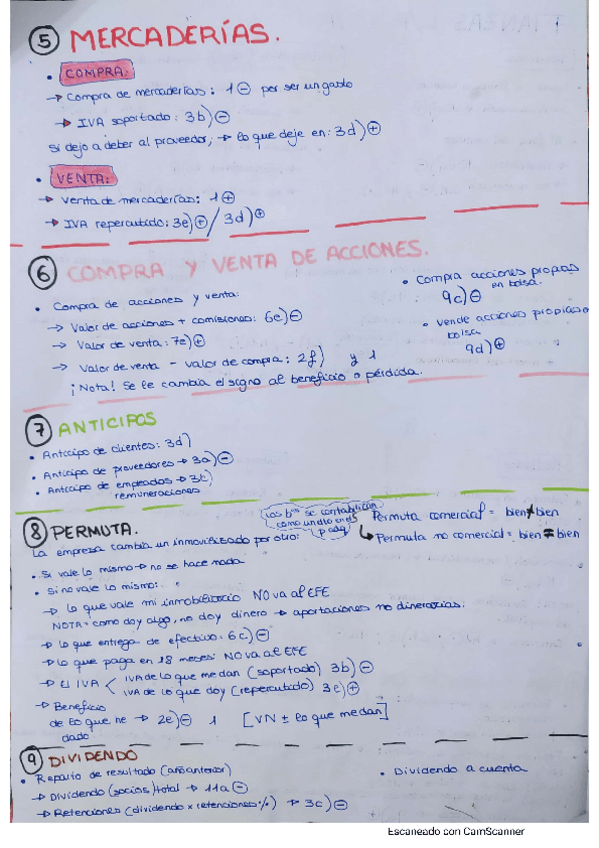 5 MERCADERÍAS.
• COMPRA:
→ Compra de mercaderías: 1 ⊖ por ser un gasto
→ IVA soportado: 3b) ⊖
Si dejo a deber al proveedor, → lo que deje en: 3d) ⊕
• VENTA:
→ Venta de mercaderías: 1 ⊕
→ IVA repercutido: 3e) ⊕ / 3d) ⊕
6 COMPRA Y VENTA DE ACCIONES.
• Compra de acciones y venta:
→ Valor de acciones + comisiones: 6e) ⊖
→ Valor de venta: 7e) ⊕
→ Valor de venta - valor de compra: 2f) y 1
¡Nota! Se le cambia el signo al beneficio o pérdida.
• Compra acciones propias
en bolsa.
9c) ⊖
• Vende acciones propias
bolsa
9d) ⊕
7 ANTICIPOS
• Anticipo de clientes: 3d)
• Anticipo de proveedores → 3a) ⊖
• Anticipo de empleados → 3c)
remuneraciones
8 PERMUTA.
La empresa cambia un inmovilizado por otro:
se contabilizan
como un dto en el
Permuta comercial = bien ≠ bien
↳ Permuta no comercial = bien = bien
• Si vale lo mismo → no se hace nada
• Si no vale lo mismo:
→ lo que vale mi inmobiliario NO va al EFE
NOTA = como doy algo, no doy dinero → aportaciones no dinerarias.
→ lo que entrega de efectivo: 6c) ⊖
→ lo que paga en 18 meses: NO va al EFE
→ El IVA < IVA de lo que me dan (soportado) 3b) ⊖
IVA de lo que doy (repercutido) 3e) ⊕
→ Beneficio
de lo que he → 2e) ⊖ 1 [VN ± lo que me dan]
dado
9 DIVIDENDO
• Reparto de resultado (año anterior)
→ Dividendo (socios) total → 11a ⊖
→ Retenciones (dividendo x retenciones %) → 3c) ⊖
• Dividendo a cuenta
Escaneado con CamScanner